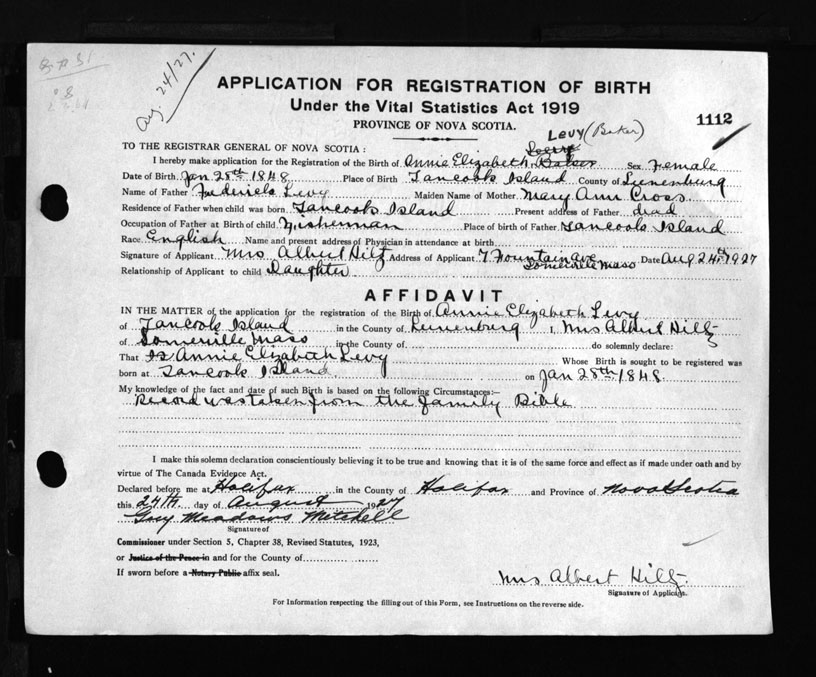 Aug. 24/27.
APPLICATION FOR REGISTRATION OF BIRTH
Under the Vital Statistics Act 1919
1112
PROVINCE OF NOVA SCOTIA.
LEVY (Baker)
TO THE REGISTRAR GENERAL OF NOVA SCOTIA :
I hereby make application for the Registration of the Birth of Annie Elizabeth Baker Sex Female
Date of Birth Jan 28th 1848 Place of Birth Tancook Island County of Lunenburg
Name of Father Frederick Levy Maiden Name of Mother Mary Ann Cross
Residence of Father when child was born Tancook Island Present address of Father dead
Occupation of Father at Birth of child Fisherman Place of birth of Father Tancook Island
Race English Name and present address of Physician in attendance at birth
Signature of Applicant Mrs Albert Hiltz Address of Applicant 7 Fountain Ave Somerville Mass Date Aug 24th 1927
Relationship of Applicant to child Daughter
AFFIDAVIT
IN THE MATTER of the application for the registration of the Birth of Annie Elizabeth Levy
of Tancook Island in the County of Lunenburg , Mrs Albert Hiltz
of Somerville Mass in the County of do solemnly declare:
That Is Annie Elizabeth Levy Whose Birth is sought to be registered was
born at Tancook Island on Jan 28th 1848.
My knowledge of the fact and date of such Birth is based on the following Circumstances:—
Record was taken from the family Bible
I make this solemn declaration conscientiously believing it to be true and knowing that it is of the same force and effect as if made under oath and by
virtue of The Canada Evidence Act.
Declared before me at Halifax in the County of Halifax and Province of Nova Scotia
this 24th day of August 1927
Guy Meadows Mitchell
Signature of
Commissioner under Section 5, Chapter 38, Revised Statutes, 1923,
or Justice of the Peace in and for the County of
If sworn before a Notary Public affix seal.
Mrs Albert Hiltz
Signature of Applicant.
For Information respecting the filling out of this Form, see Instructions on the reverse side.